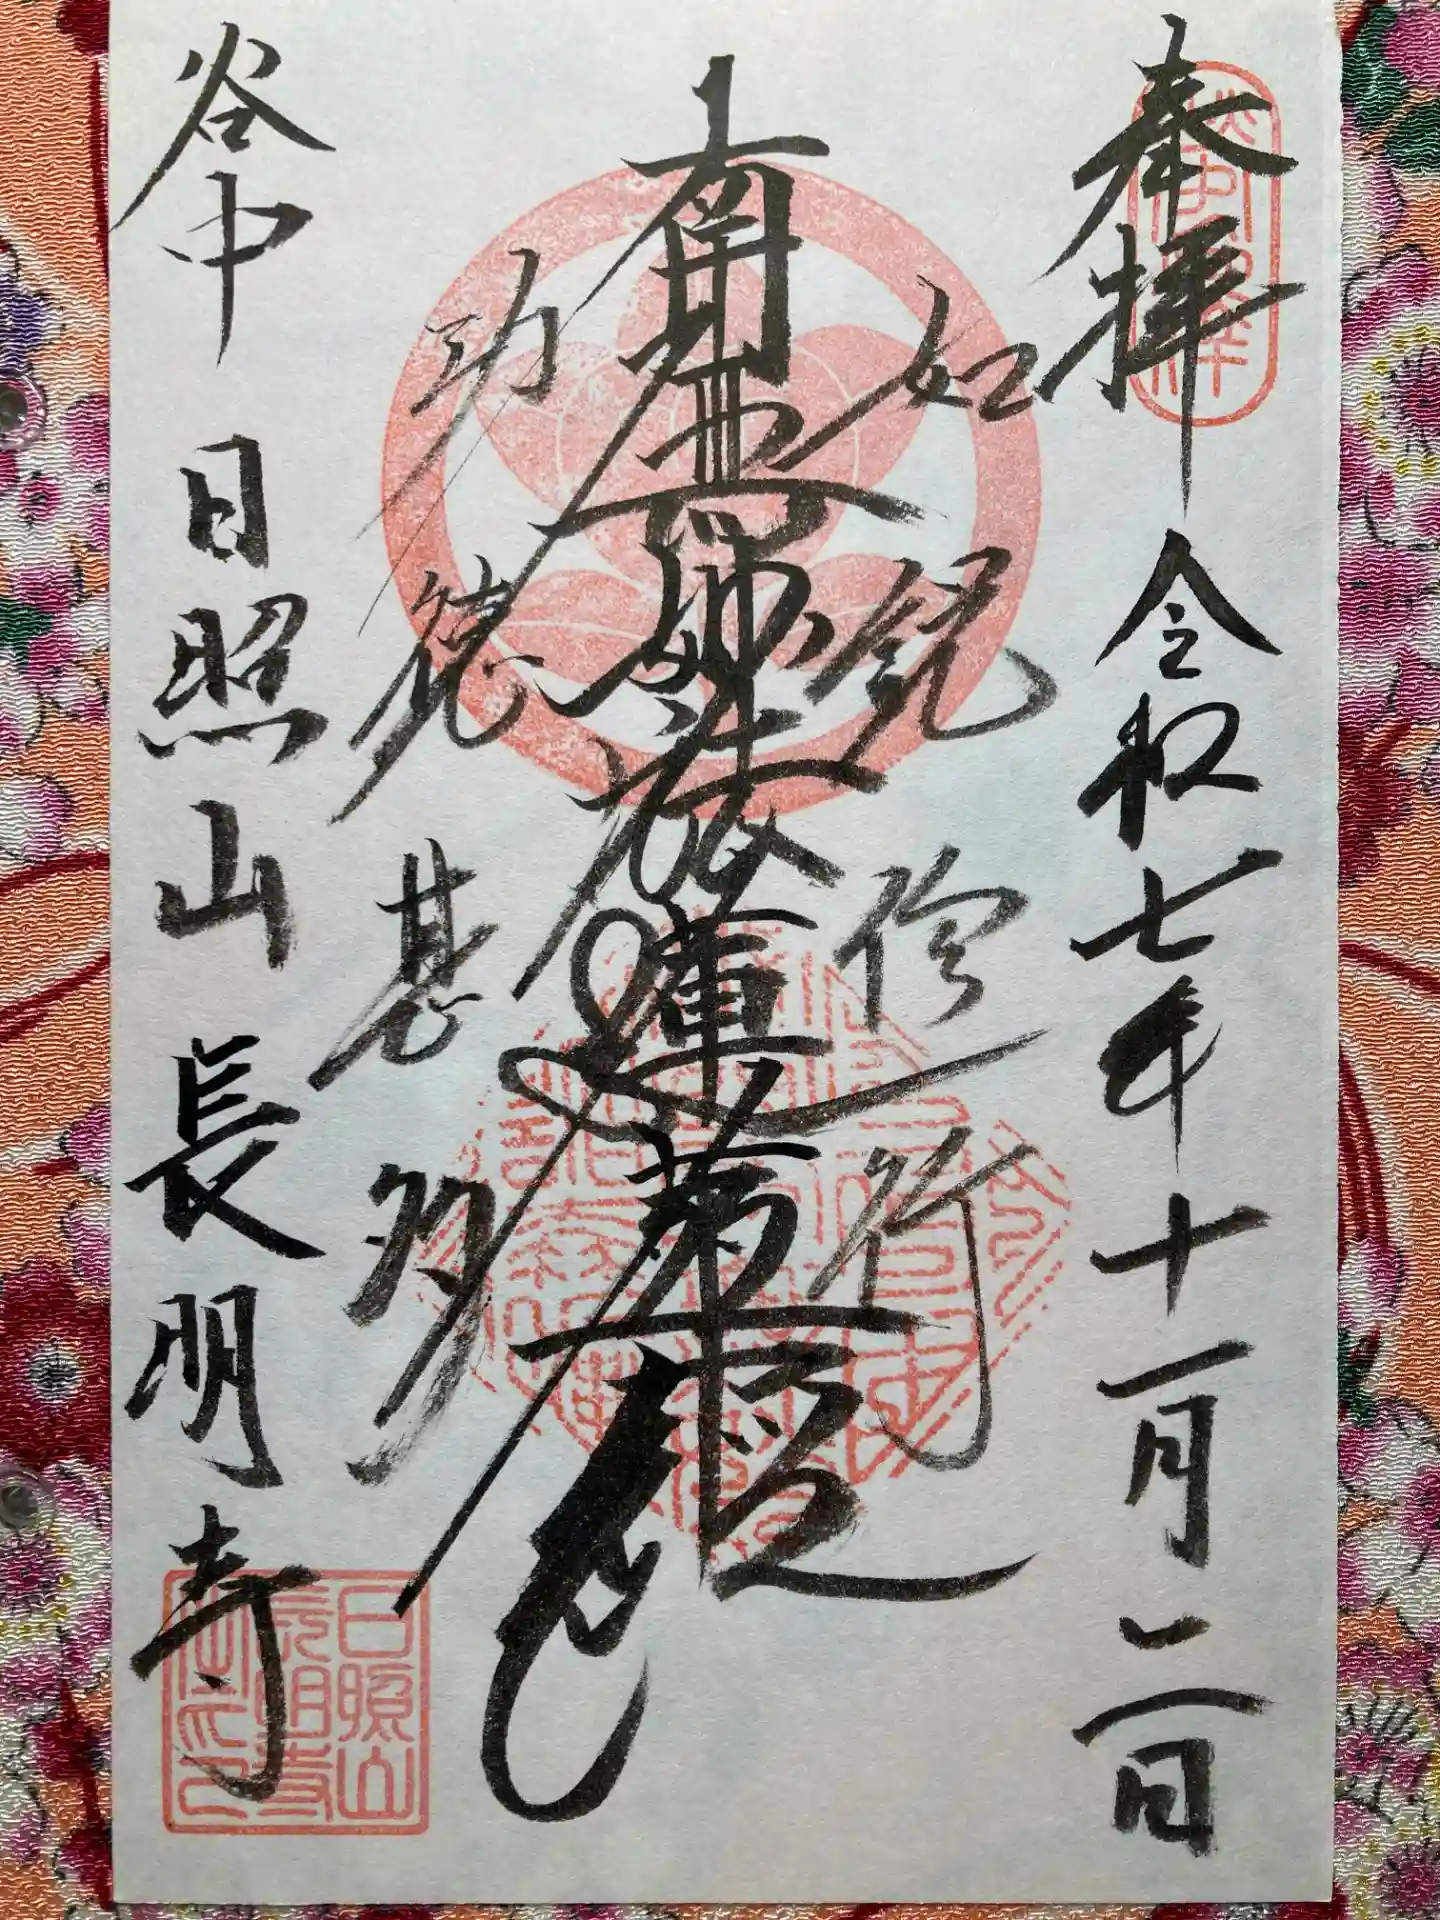 奉拝 令和七年十一月二日
如説修行
南無妙法蓮華経
功徳甚多
谷中 日照山 長明寺
日照山
長明寺